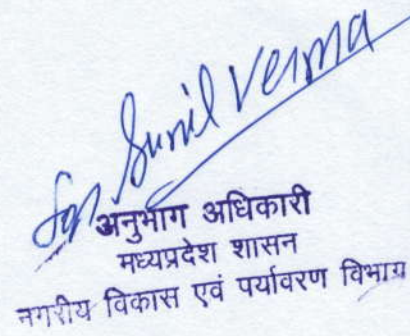 for Sunil Verma
अनुभाग अधिकारी
मध्यप्रदेश शासन
नगरीय विकास एवं पर्यावरण विभाग